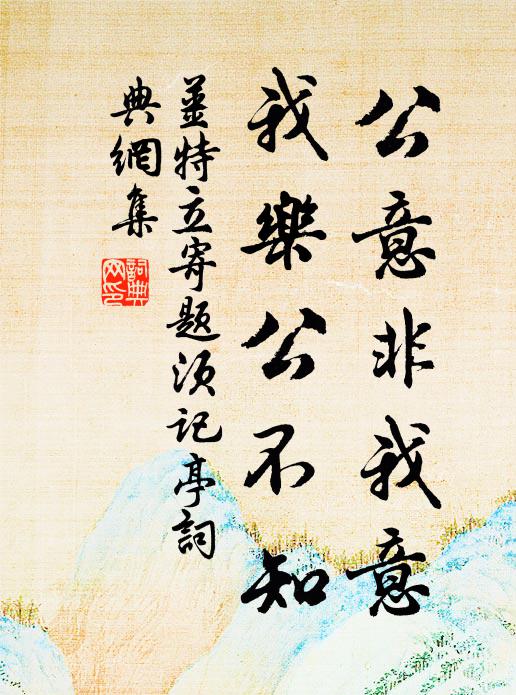 公意非我意
我樂公不知
姜特立寄題須記亭詞
典網集
詞典
网印